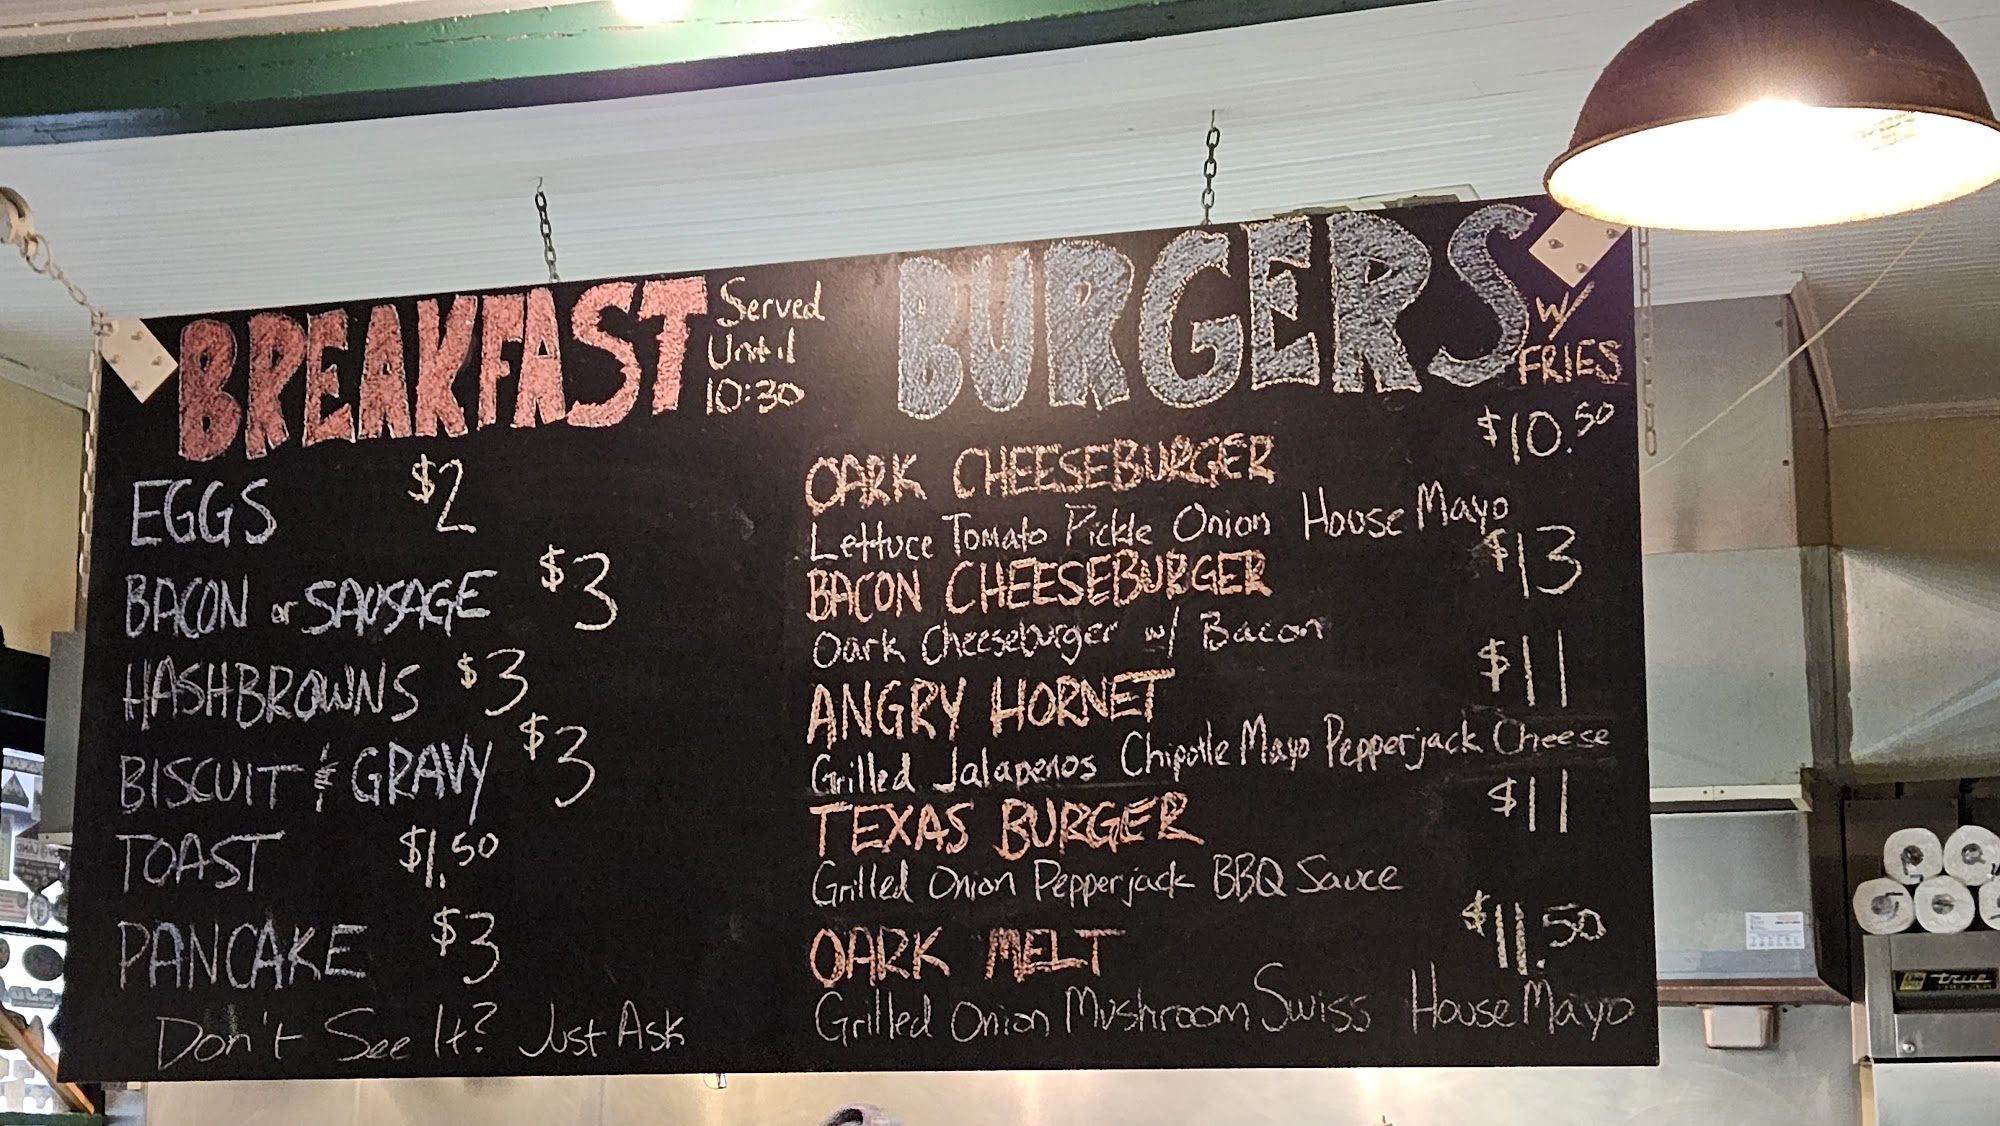 BREAKFAST Served Until 10:30
EGGS $2
BACON or SAUSAGE $3
HASHBROWNS $3
BISCUIT & GRAVY $3
TOAST $1.50
PANCAKE $3
Don't See It? Just Ask
BURGERS w/ FRIES
OARK CHEESEBURGER $10.50
Lettuce Tomato Pickle Onion House Mayo
BACON CHEESEBURGER $13
Oark Cheeseburger w/ Bacon
ANGRY HORNET $11
Grilled Jalapenos Chipotle Mayo Pepperjack Cheese
TEXAS BURGER $11
Grilled Onion Pepperjack BBQ Sauce
OARK MELT $11.50
Grilled Onion Mushroom Swiss House Mayo
true